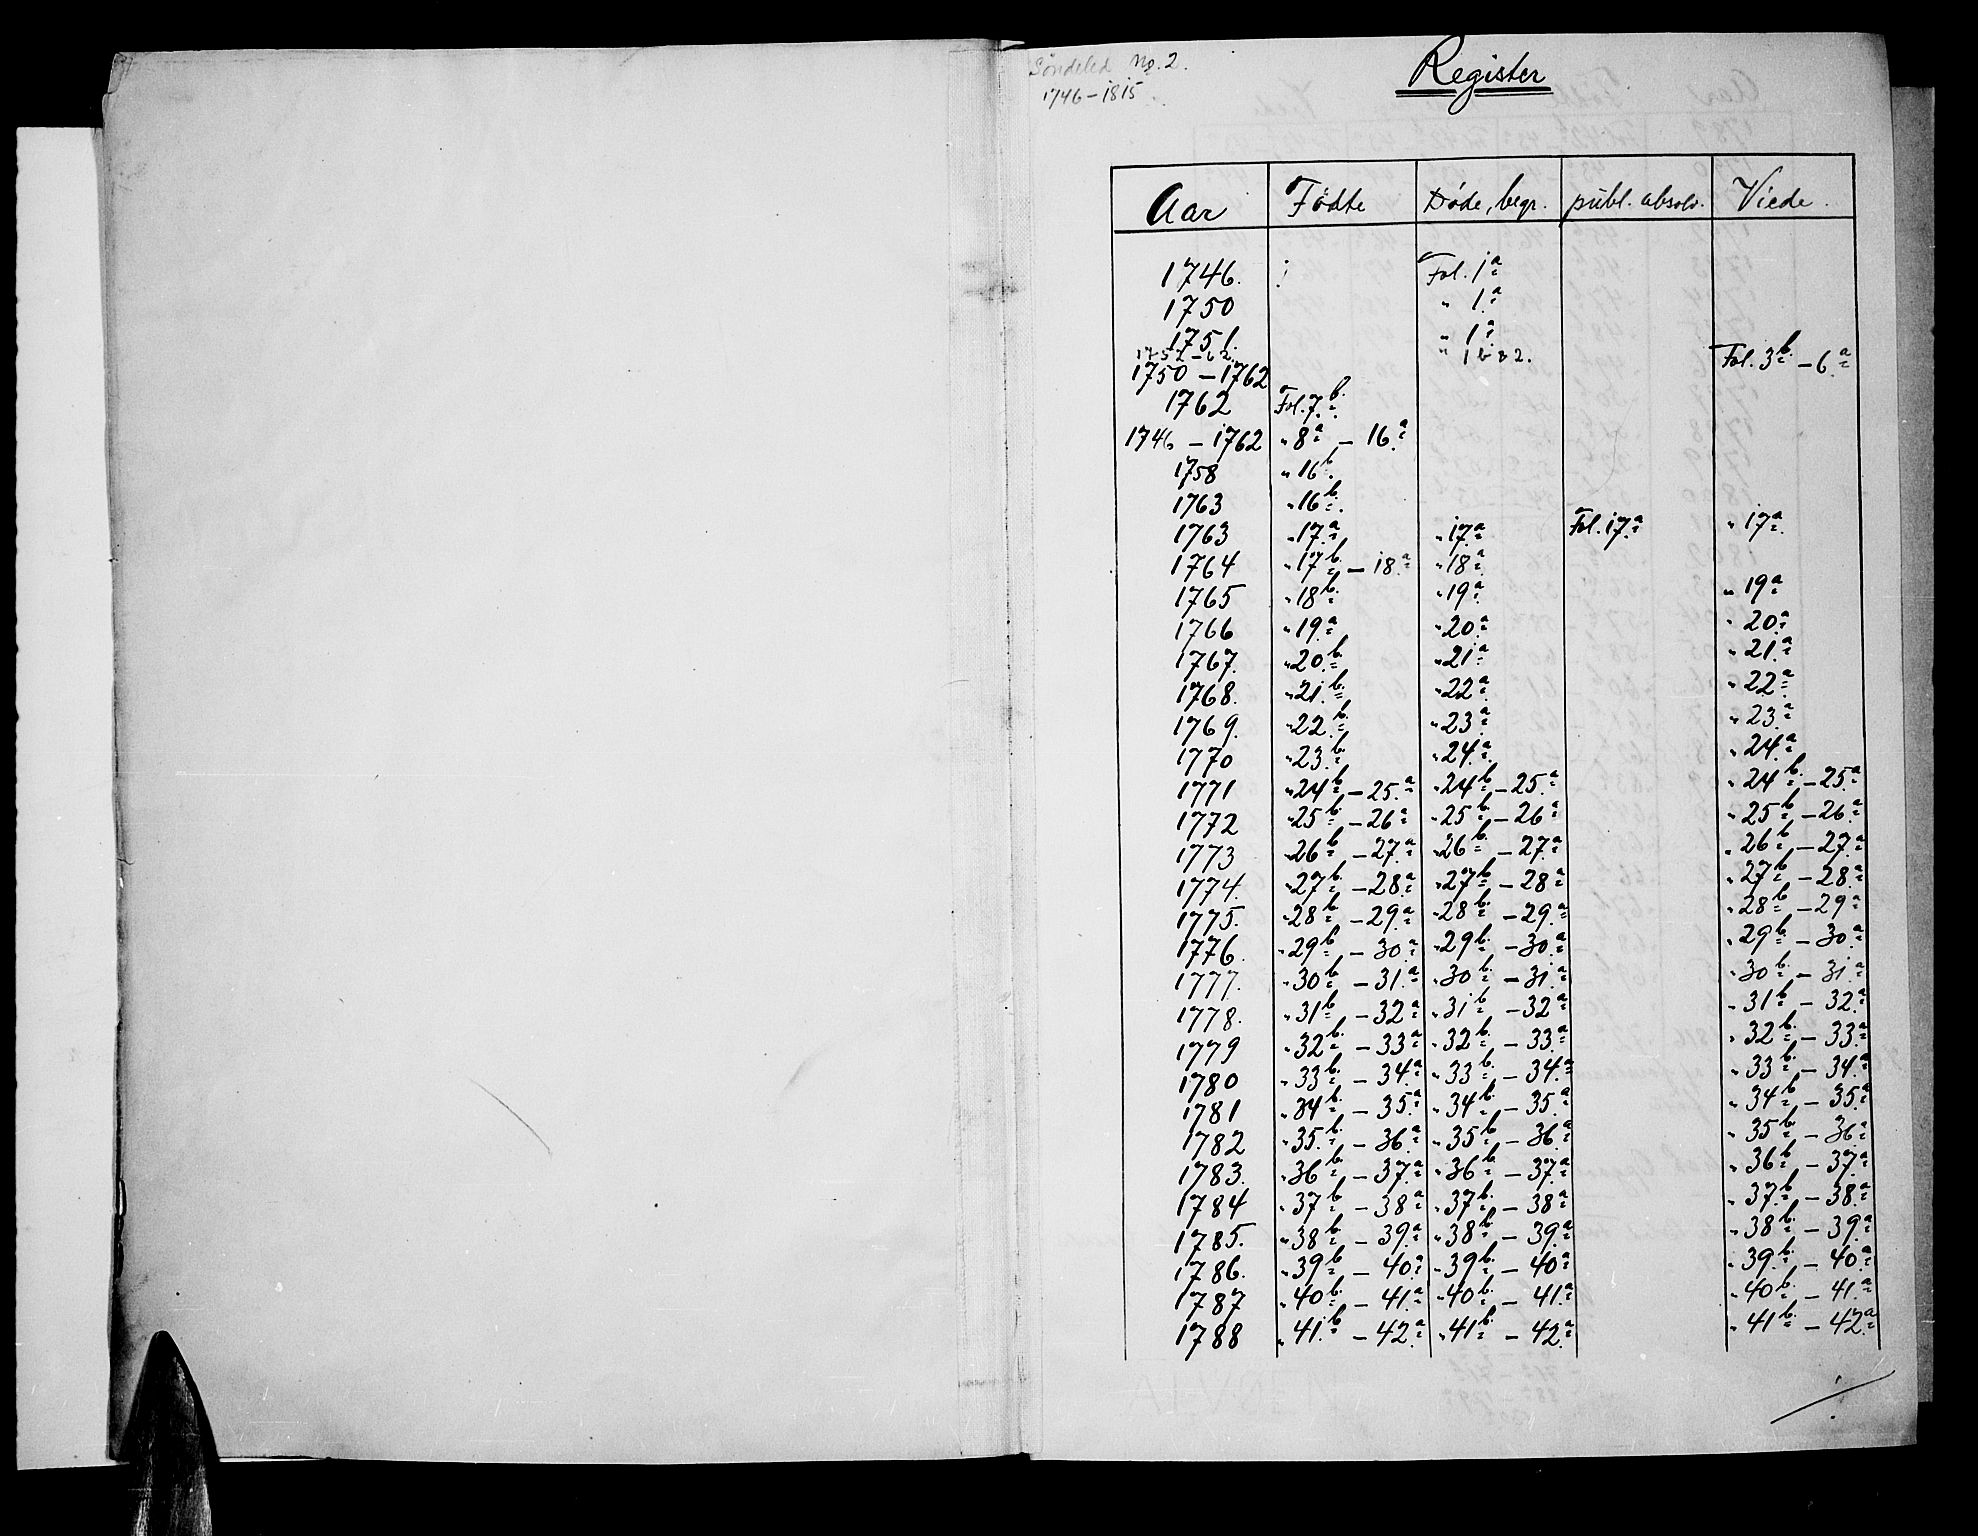 Søndeled No. 2.
1746-1815
Register
Aar Födte Döde, begr. publ. absolv. Viede.
1746. Fol. 1a
1750 " 1a
1751. " 1a
1752-62. " 1b & 2.
1750 - 1762 Fol. 3b - 6a
1762 Fol. 7b.
1746 - 1762 " 8a - 16a
1758 " 16b.
1763 " 16b.
1763 " 17a " 17a Fol. 17a " 17a
1764 " 17b - 18a " 18a
1765 " 18b " 19a " 19a
1766 " 19a " 20a " 20a
1767. " 20b " 21a " 21a
1768. " 21b " 22a " 22a
1769. " 22b " 23a " 23a
1770 " 23b " 24a " 24a
1771 " 24b - 25a " 24b - 25a " 24b - 25a
1772 " 25b - 26a " 25b - 26a " 25b - 26a
1773 " 26b - 27a " 26b - 27a " 26b - 27a
1774. " 27b - 28a " 27b - 28a " 27b - 28a
1775. " 28b - 29a " 28b - 29a " 28b - 29a
1776. " 29b - 30a " 29b - 30a " 29b - 30a
1777. " 30b - 31a " 30b - 31a " 30b - 31a
1778. " 31b - 32a " 31b - 32a " 31b - 32a
1779 " 32b - 33a " 32b - 33a " 32b - 33a
1780 " 33b - 34a " 33b - 34a " 33b - 34a
1781 " 34b - 35a " 34b - 35a " 34b - 35a
1782 " 35b - 36a " 35b - 36a " 35b - 36a
1783. " 36b - 37a " 36b - 37a " 36b - 37a
1784 " 37b - 38a " 37b - 38a " 37b - 38a
1785. " 38b - 39a " 38b - 39a " 38b - 39a
1786. " 39b - 40a " 39b - 40a " 39b - 40a
1787 " 40b - 41a " 40b - 41a " 40b - 41a
1788 " 41b - 42a " 41b - 42a " 41b - 42a